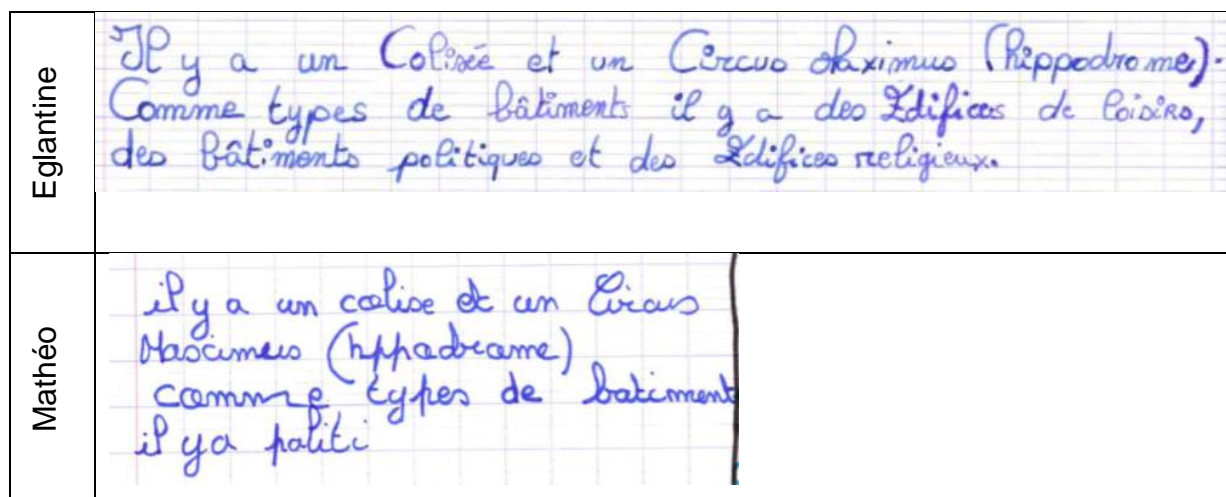 Eglantine
Il y a un Colisée et un Circus Maximus (hippodrome).
Comme types de bâtiments il y a des Edifices de loisirs,
des bâtiments politiques et des Edifices religieux.
Mathéo
il y a un colise et un Circus
Mascimus (hppodrome)
comme types de batiment
il ya politi